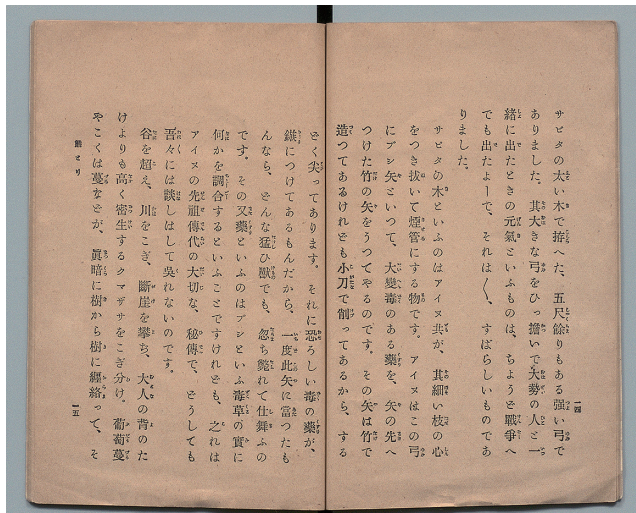 サビタの太い木で拵へた、五尺餘りもある强い弓で
ありました。其大きな弓をひっ擔いで大勢の人と一
緒に出たときの元氣といふものは、ちようど戰爭へ
でも出たよーで、それは〱、すばらしいものであ
りました。
サビタの木といふのはアイヌ共が、其細い枝の心
をつき拔いて煙管にする物です。アイヌはこの弓
にブシ矢といつて、大變毒のある藥を、矢の先へ
つけた竹の矢をうつてやるのです。その矢は竹で
造つてあるけれども小刀で削ってあるから、する
一四
どく尖ってあります。それに恐ろしい毒の藥が、
鏃につけてあるもんだから、一度此矢に當つたも
んなら、どんな猛ひ獸でも、忽ち斃れて仕舞ふの
です。その又藥といふのはブシといふ毒草の實に
何かを調合するといふことですけれども、之れは
アイヌの先祖傳代の大切な、秘傳で、どうしても
吾々には談しはして吳れないのです。
谷を超え、川をこぎ、斷崖を攀ぢ、大人の背のた
けよりも高く密生するクマザサをこぎ分け、葡萄蔓
やこくは蔓などが、眞暗に樹から樹に纒絡って、そ
熊とり
一五